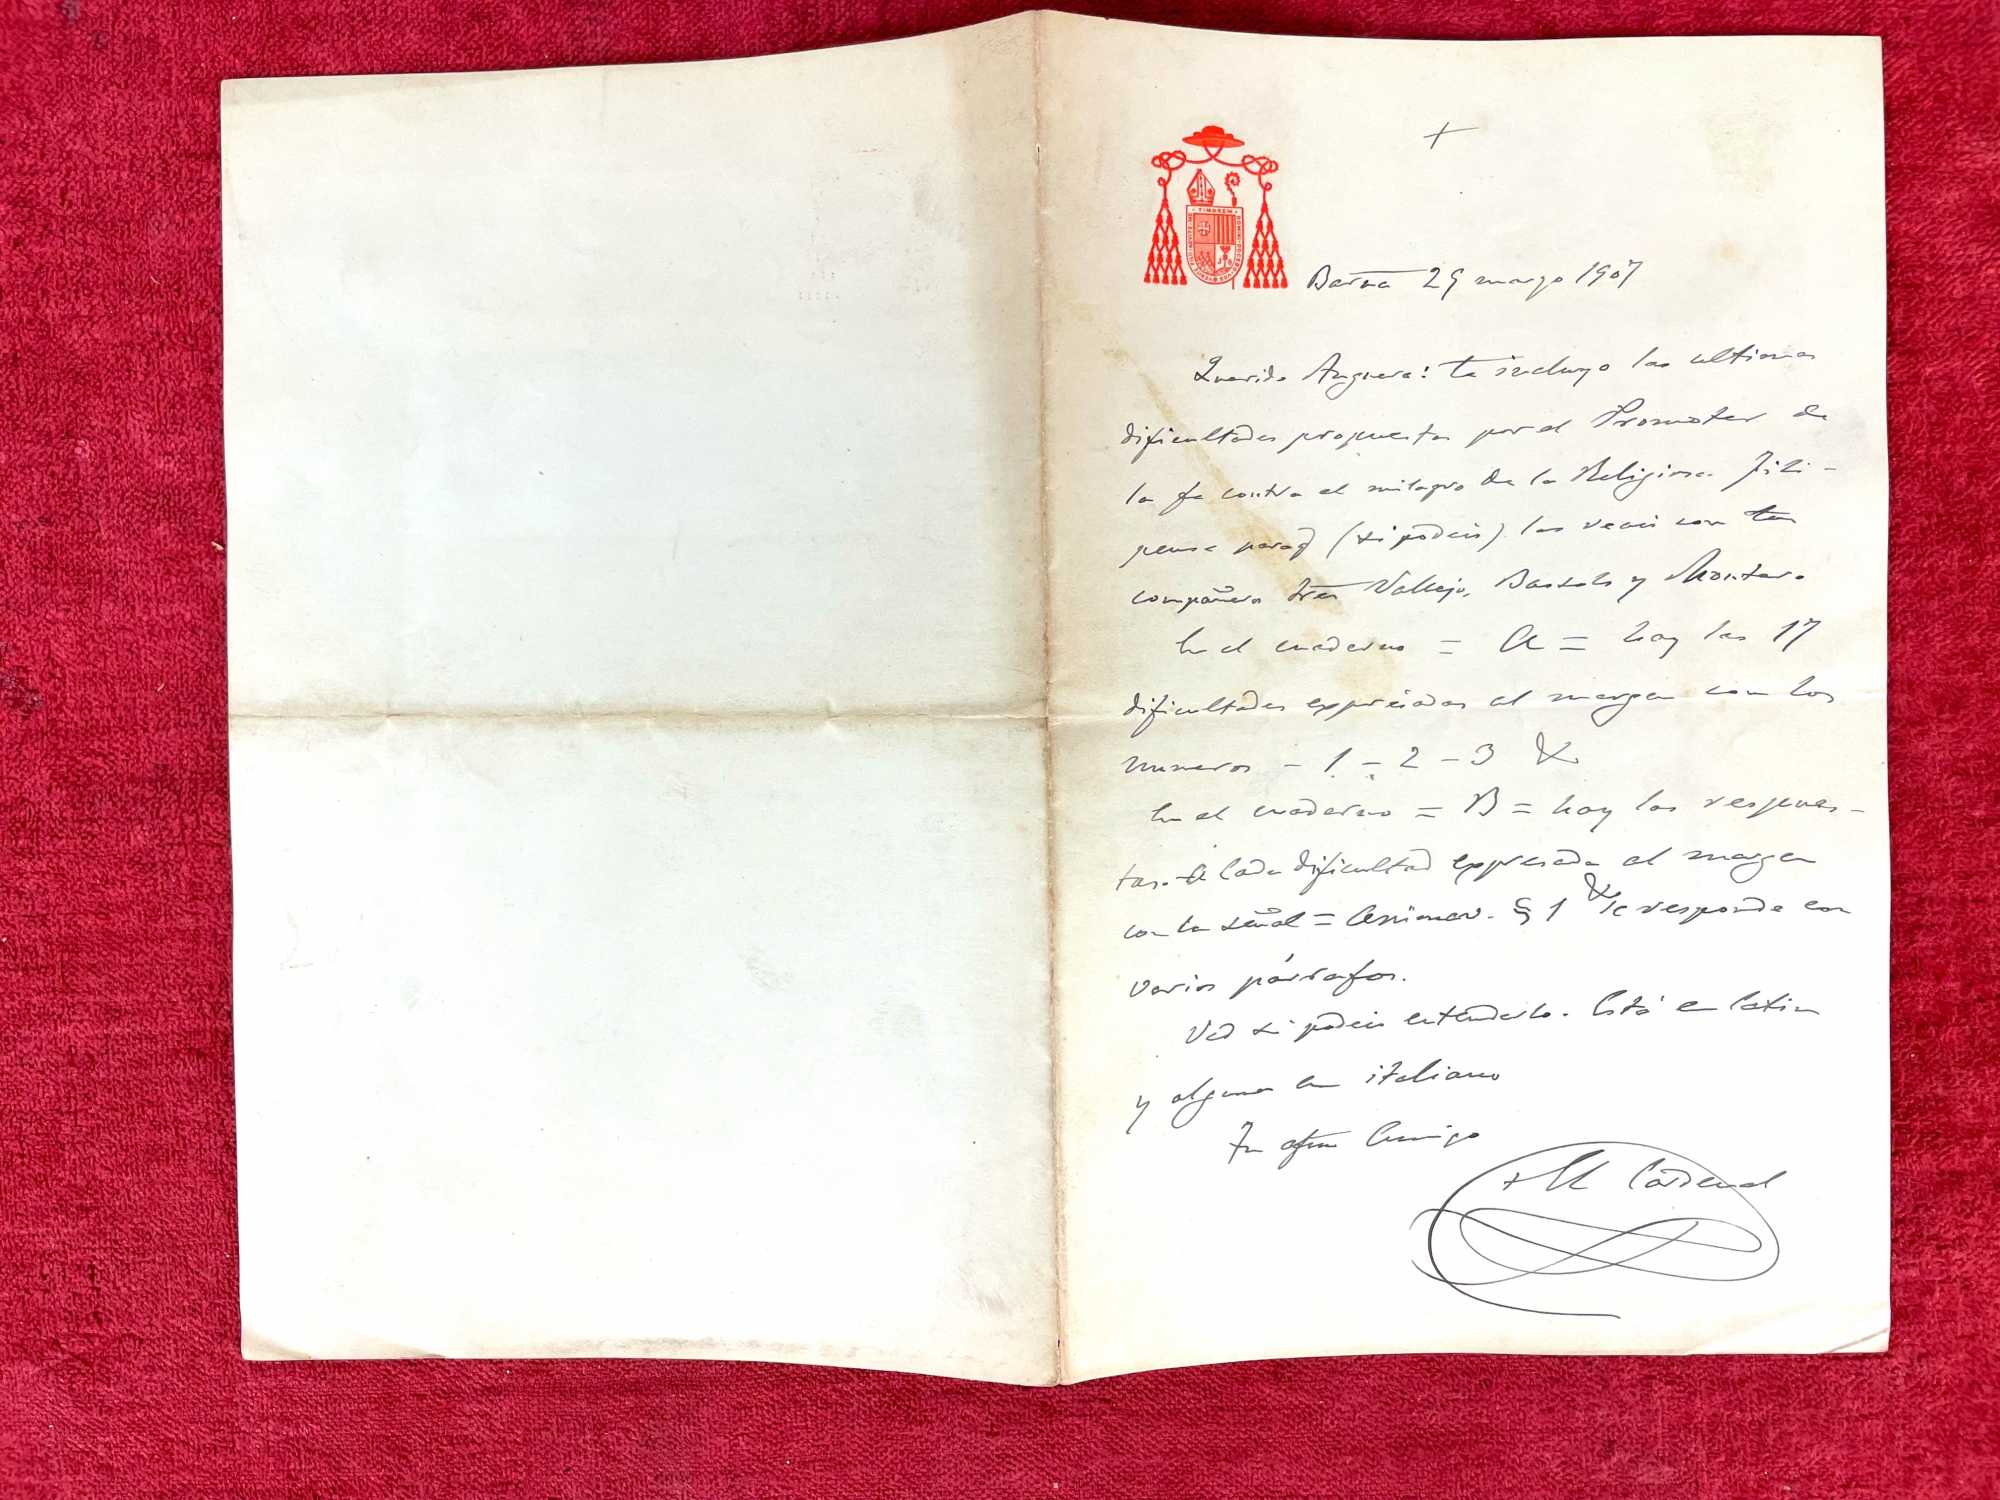 +
TIMOREM DOMINI DOCEBO VOS
Barna 29 marzo 1907
Querido Anguera: te incluyo las ultimas
dificultades propuestas por el Promotor de
la fe contra el milagro de la Religiosa Fili-
pense paraq (si podeis) las veais con tus
compañeros Dres Vallejo, Bassols y Montero
En el cuaderno = A = hay las 17
dificultades expresadas al margen con los
numeros - 1 - 2 - 3 &
En el cuaderno = B = hay las respues-
tas. A Cada dificultad expresada al margen
con la señal = Animadv. § 1 & se responde con
varios párrafos.
Ved si podeis entenderlo. Está en latin
y algunas en italiano
Tu afmo Amigo
+ Cardenal